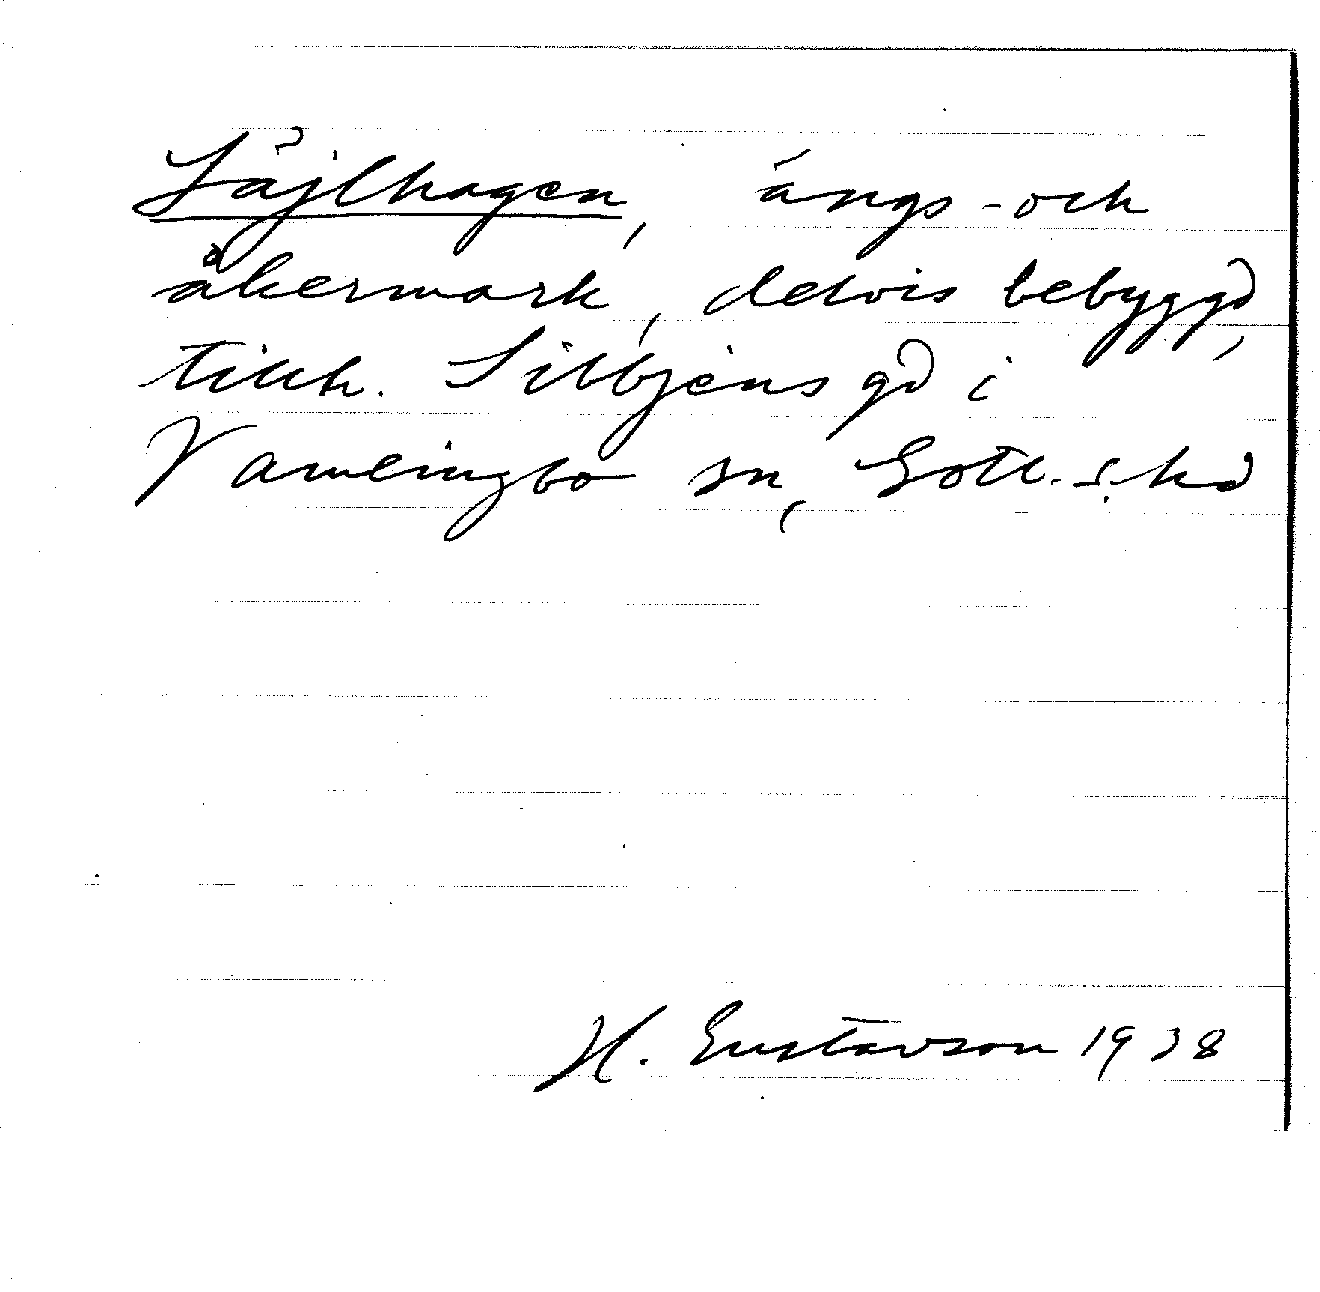 Såjlhagen, ängs- och
åkermark, delvis bebyggd,
tillh. Sibbjens gd i
Vamlingbo sn, Gotl. s. hd
H. Gustavson 1938